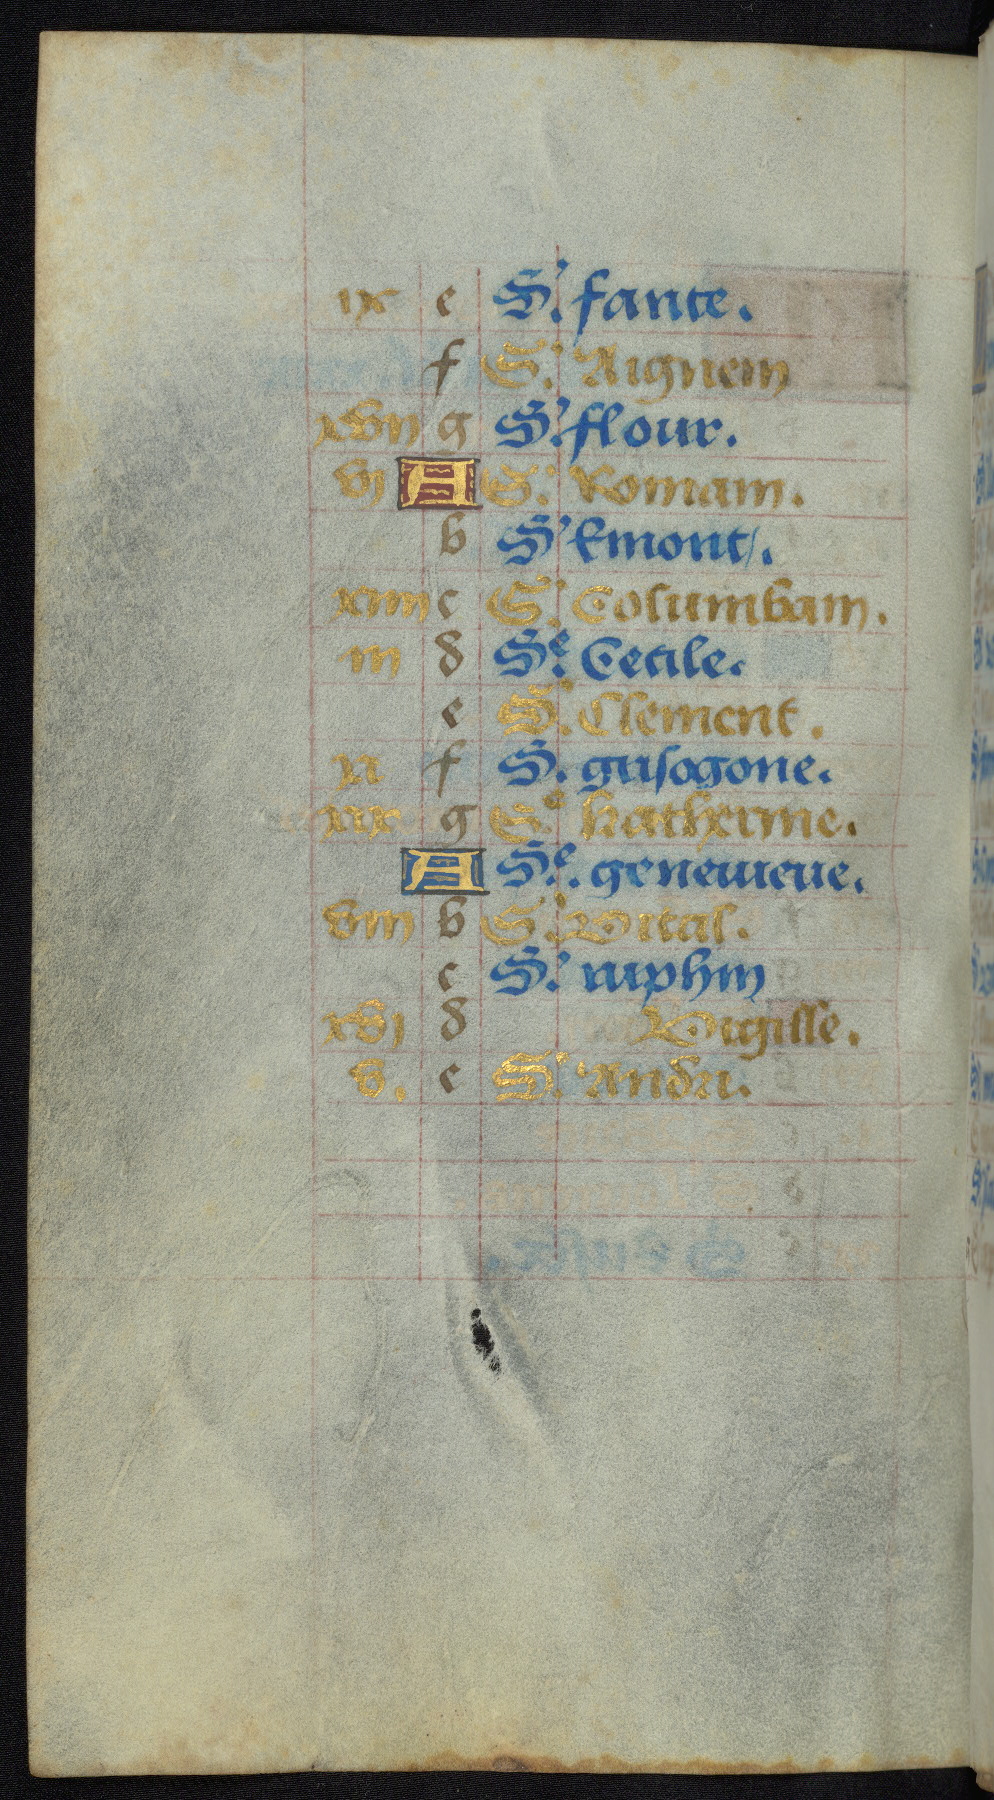 ix e S'. fante.
f S'. Aignem
xvii g S'. flour.
vi A S'. Romain.
b S' Emont.
xiiii c S'. Columbain.
iii d Se. Cecile.
e S'. Clement.
xi f S. grisogone.
xix g Se katherine.
A Se. geneuieue.
viii b S'. Vital.
c S'. ruphin
xvi d Vigille.
v. e S'. Andri.